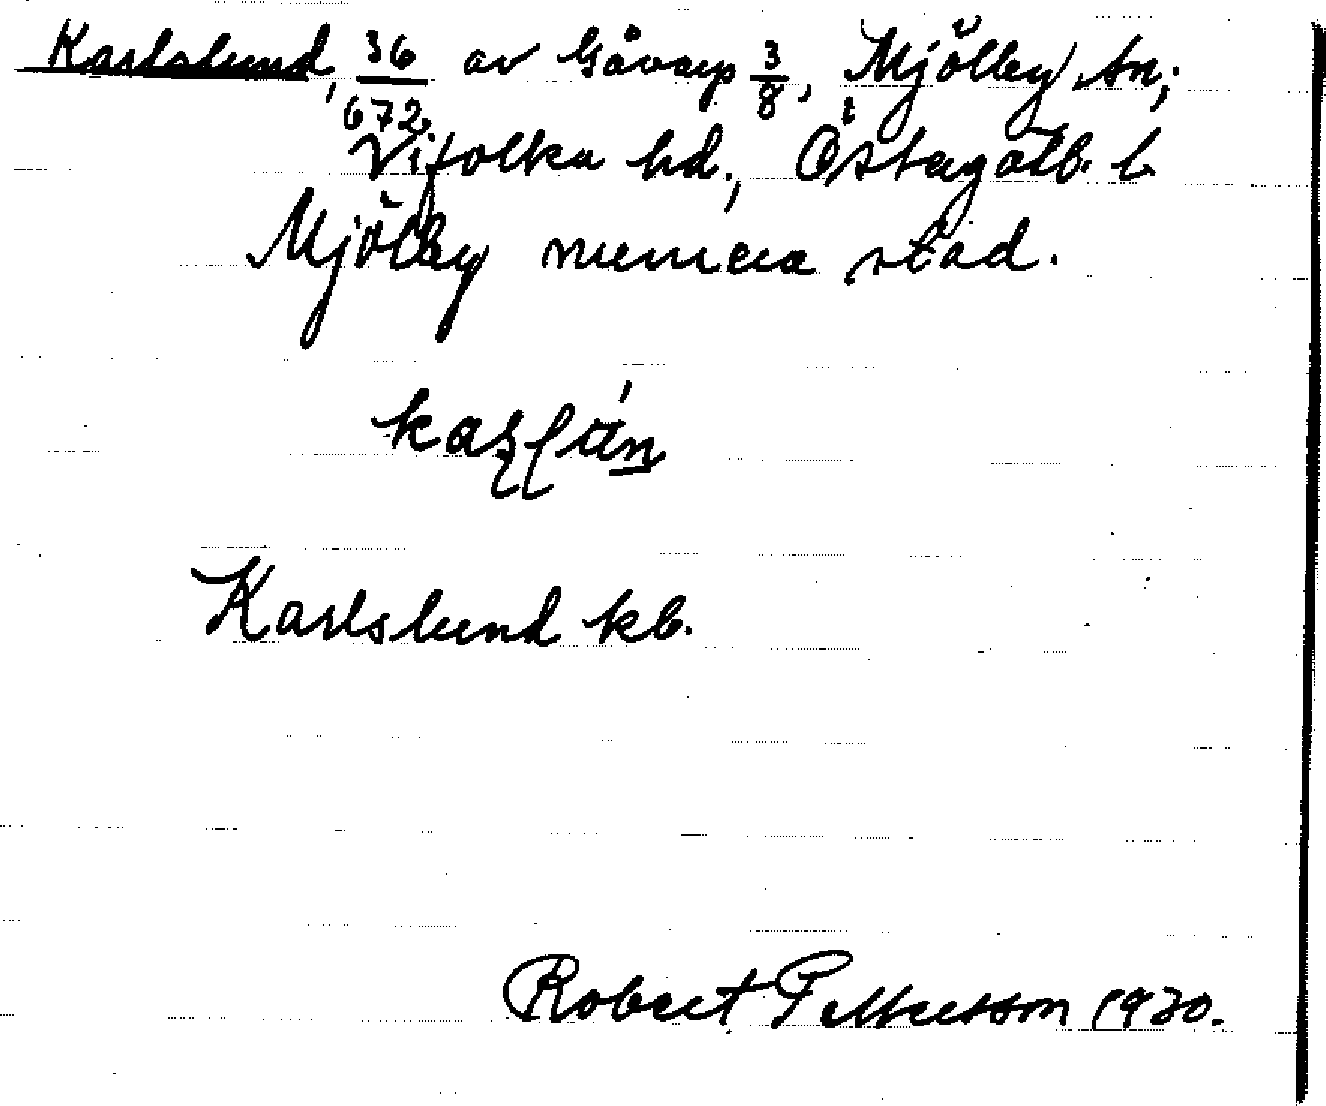 Karlslund, 36/672 av Gåvarp 3/8, Mjölby sn;
Vifolka hd., Östergötl. l.
Mjölby numera stad.
Karlslund kb.
Robert Pettersson 1930.